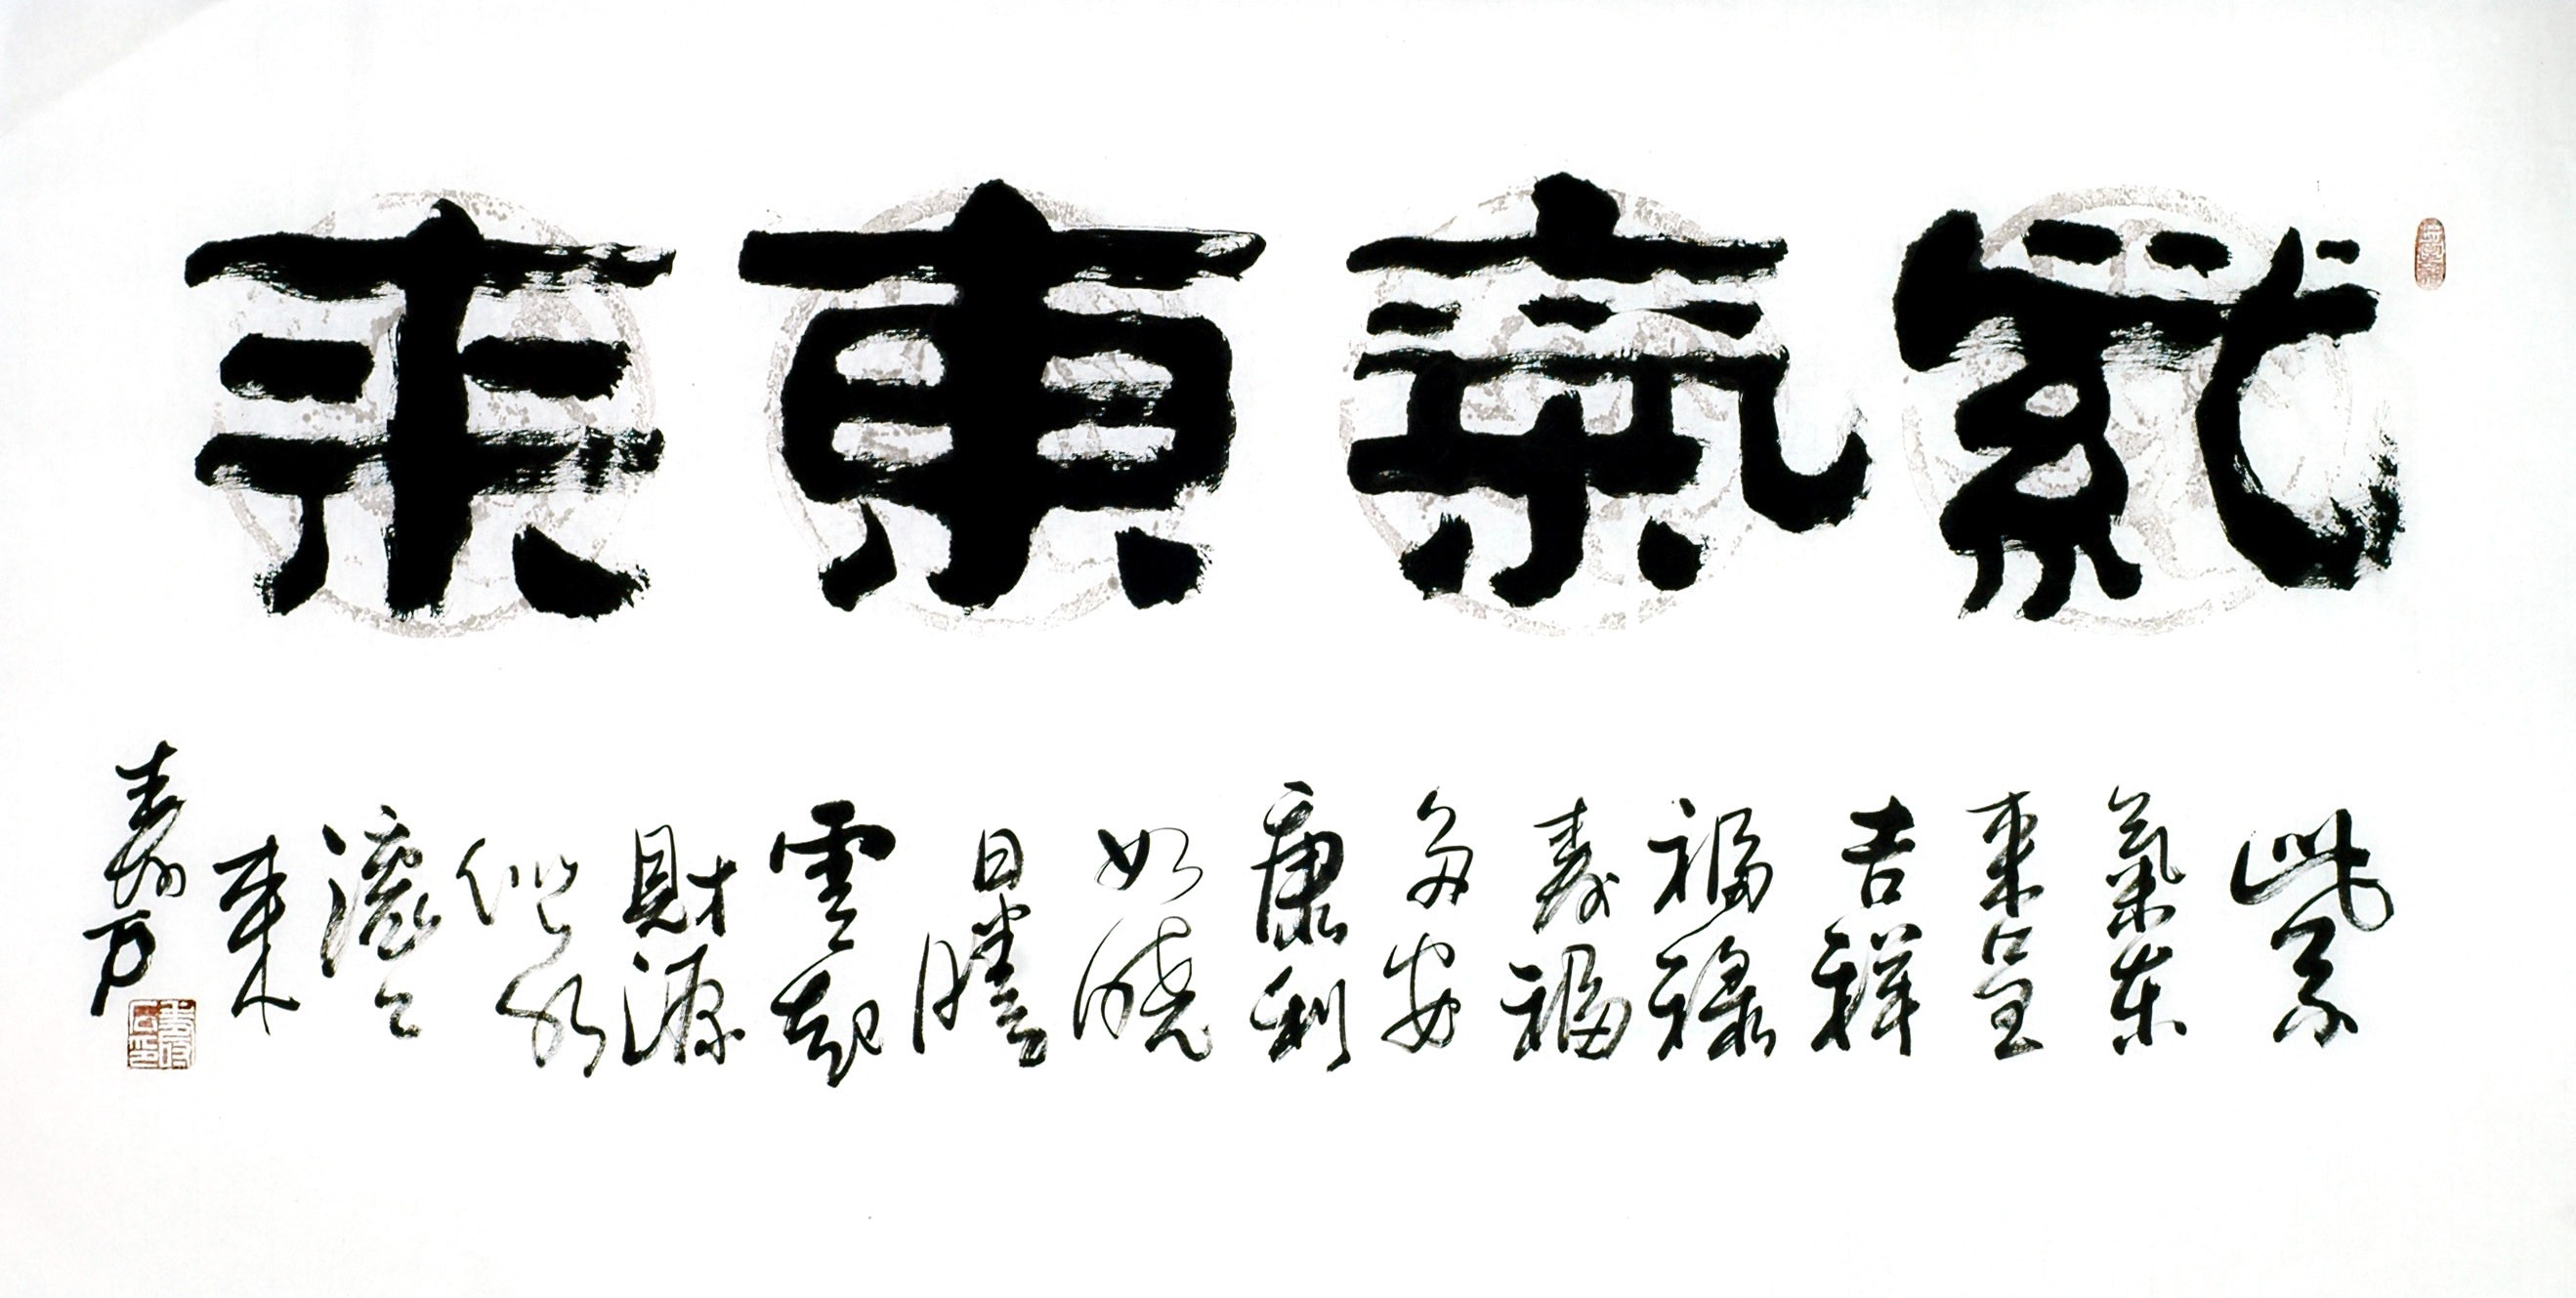 紫氣東來
紫
氣東
來呈
吉祥
福祿
壽福
多安
康利
如曉
日騰
雲起
財源
似水
滾〻
來
壽石